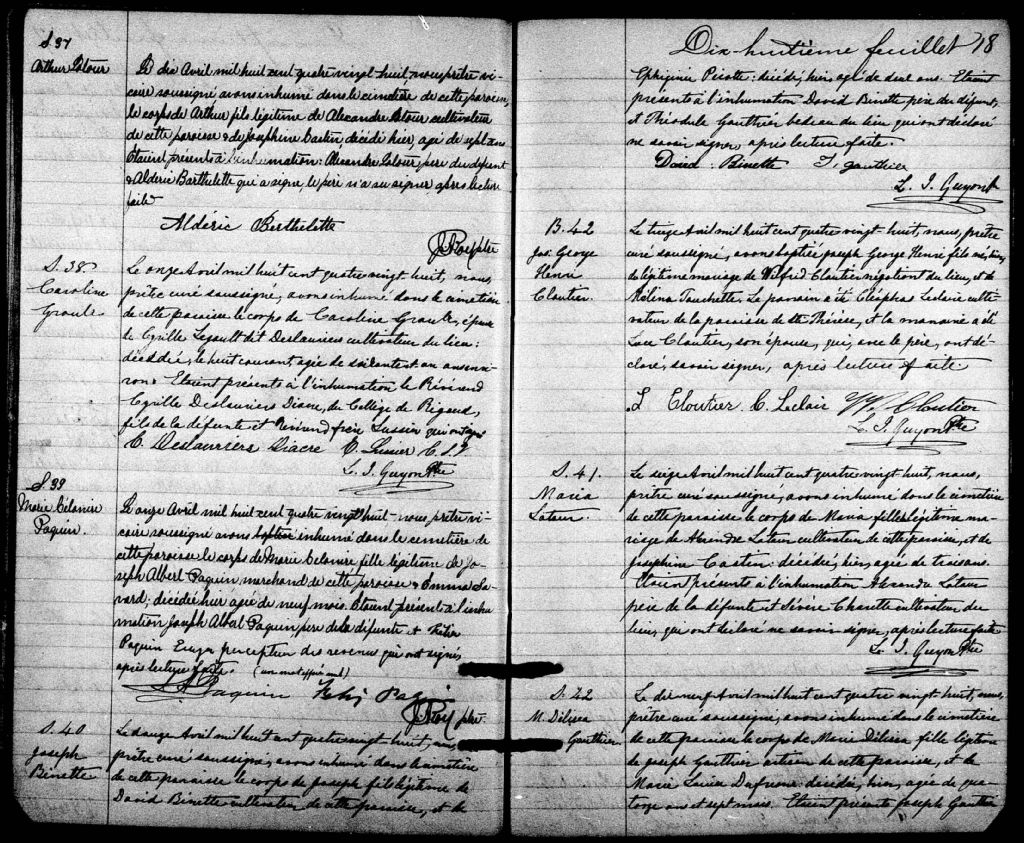 S 37
Arthur Latour
Le dix Avril mil huit cent quatre vingt huit nous prêtre vi-
caire soussigné avons inhumé dans le cimetière de cette paroisse
le corps de Arthur fils légitime de Alexandre Latour cultivateur
de cette paroisse & de Josephine Castin, décédé hier, agé de sept ans
Etaient présents à l'inhumation: Alexandre Latour pere du defunt
& Alderic Barthelette qui a signé, le père n'a su signer après lecture
faite
Aldéric Berthelette
J. Roy ptre
S. 38
Caroline
Groulx
Le onze Avril mil huit cent quatre vingt huit, nous,
prêtre curé soussigné, avons inhumé dans le cimetière
de cette paroisse le corps de Caroline Groulx, épouse
de Cyrille Legault dit Deslauriers cultivateur du lieu:
décédée, le huit courant, agée de soixante et un ans envi-
ron. Etaient présents à l'inhumation le Révérend
Cyrille Deslauriers Diacre, du Collège de Rigaud,
fils de la défunte et Révérend frère Lussier qui ont signé
C. Deslauriers Diacre C. Lussier C.S.V
L. J. Guyon Ptre
S. 39
Marie Célanire
Paquin.
Le onze Avril mil huit cent quatre vingt huit - nous prêtre vi-
caire soussigné avons baptisé inhumé dans le cemetière de
cette paroisse le corps de Marie Celanire, fille légitime de Jo-
seph Albert Paquin, marchand de cette paroisse & Emma La-
vard; décédée hier agée de neuf mois. Etaient présent à l'inhu-
mation Joseph Albert Paquin, pere de la défunte &
Paquin Ecuyer perception des revenus qui ont signés
après lecture faite. (un mot effacé nul)
A Paquin Paquin
J. Roy ptre.
S. 40
Joseph
Binette
Le douze Avril mil huit cent quatre vingt huit, nous,
prêtre curé soussigné, avons inhumé dans le cimetière
de cette paroisse le corps de Joseph fils légitime de
David Binette cultivateur de cette paroisse, et de
Dix-huitième feuillet 18
Ephiginie Picotte: décédé, hier, agé de sept ans. Etaient
présents à l'inhumation David Binette père du défunt,
et Théodule Gauthier bedeau du lieu qui ont déclaré
ne savoir signer, après lecture faite.
David Binette T. Gauthier
L. J. Guyon Ptre
B. 42
Jos. George
Henri
Cloutier.
Le treize Avril mil huit cent quatre vingt huit, nous, prêtre
curé soussigné, avons baptisé Joseph George Henri fils né, hier,
de légitime mariage de Wilfrid Cloutier négotiant du lieu, et de
Héléna Touchette. Le parrain a été Cléophas Leclaire culti-
vateur de la paroisse de Ste Thérèse, et la marraine a été
Cloutier, son épouse, qui, avec le père, ont dé-
claré, savoir signer, après lecture faite.
L Cloutier C. Leclair W. Cloutier
L. J. Guyon Ptre
S. 41.
Maria
Latour.
Le seize Avril mil huit cent quatre vingt huit, nous,
prêtre curé soussigné, avons inhumé dans le cimetière
de cette paroisse le corps de Maria fille légitime ma-
riage de Latour cultivateur de cette paroisse, et de
Josephine Castin: décédée, hier, agée de trois ans.
Etaient présents à l'inhumation Latour
père de la défunte et Sévère Charette cultivateur du
lieu, qui ont déclaré ne savoir signer, après lecture faite
L. J. Guyon Ptre
S. 42
M. Délisca
Gauthier.
Le dix neuf Avril mil huit cent quatre vingt huit, nous,
prêtre curé soussigné, avons inhumé dans le cimetière
de cette paroisse le corps de Marie Délisca fille légitime
de Joseph Gauthier artisan de cette paroisse, et de
Marie Louise Dufresne: décédée, hier, agée de qua-
torze ans et sept mois. Etaient présents Joseph Gauthier